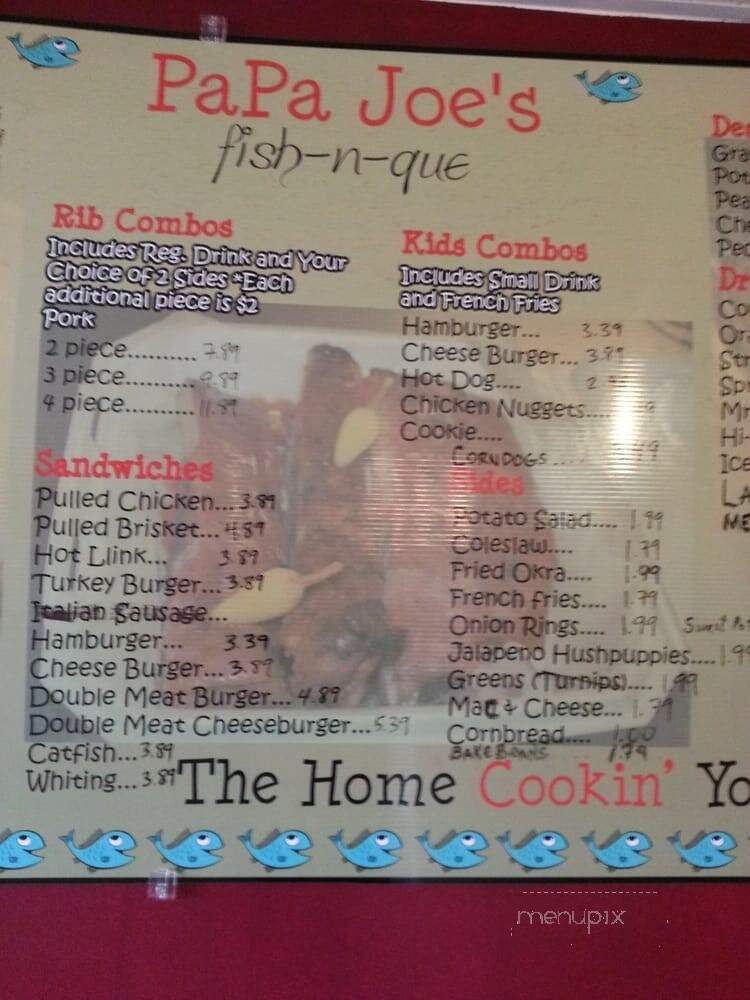 PaPa Joe's
fish-n-que
Rib Combos
Includes Reg. Drink and Your
Choice of 2 Sides *Each
additional piece is $2
Pork
2 piece.......... 7.89
3 piece.......... 9.89
4 piece.......... 11.89
Sandwiches
Pulled Chicken... 3.89
Pulled Brisket... 4.89
Hot Llink... 3.89
Turkey Burger... 3.89
Italian Sausage...
Hamburger... 3.39
Cheese Burger... 3.89
Double Meat Burger... 4.89
Double Meat Cheeseburger... 5.39
Catfish... 3.89
Whiting... 3.89
Kids Combos
Includes Small Drink
and French Fries
Hamburger... 3.39
Cheese Burger... 3.89
Hot Dog....
Chicken Nuggets....
Cookie....
CORNDOGS ....
Sides
Potato Salad.... 1.99
Coleslaw.... 1.79
Fried Okra.... 1.99
French fries.... 1.79
Onion Rings.... 1.99 Sweet Pot
Jalapeno Hushpuppies.... 1.99
Greens (Turnips).... 1.99
Mac & Cheese... 1.79
Cornbread.... 1.00
BAKE BEANS 1.79
The Home Cookin' Yo
menupix